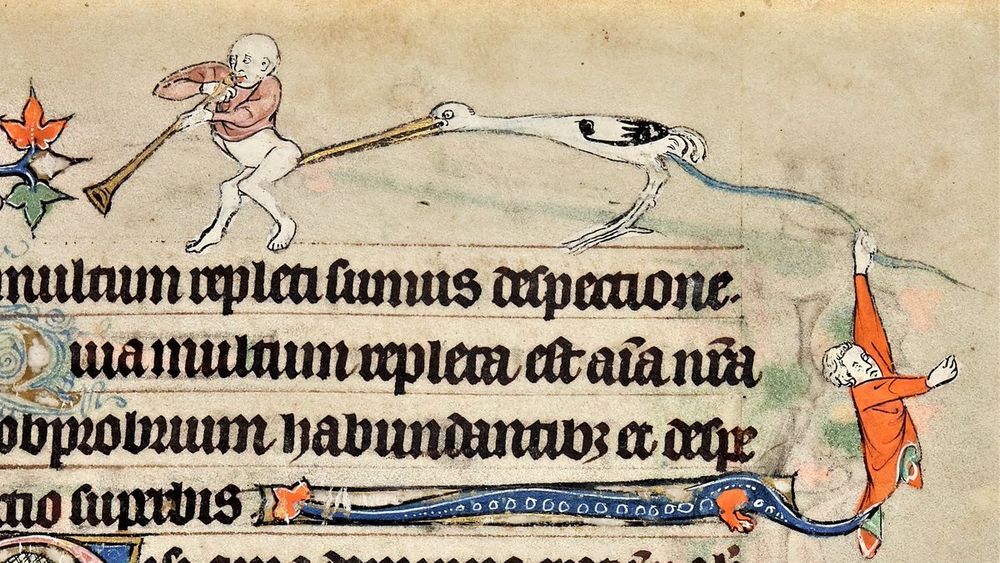 multum repleti sumus despectione.
Quia multum repleta est aīa nr̄a
obprobrium habundantibꝫ et despe
ctio superbis